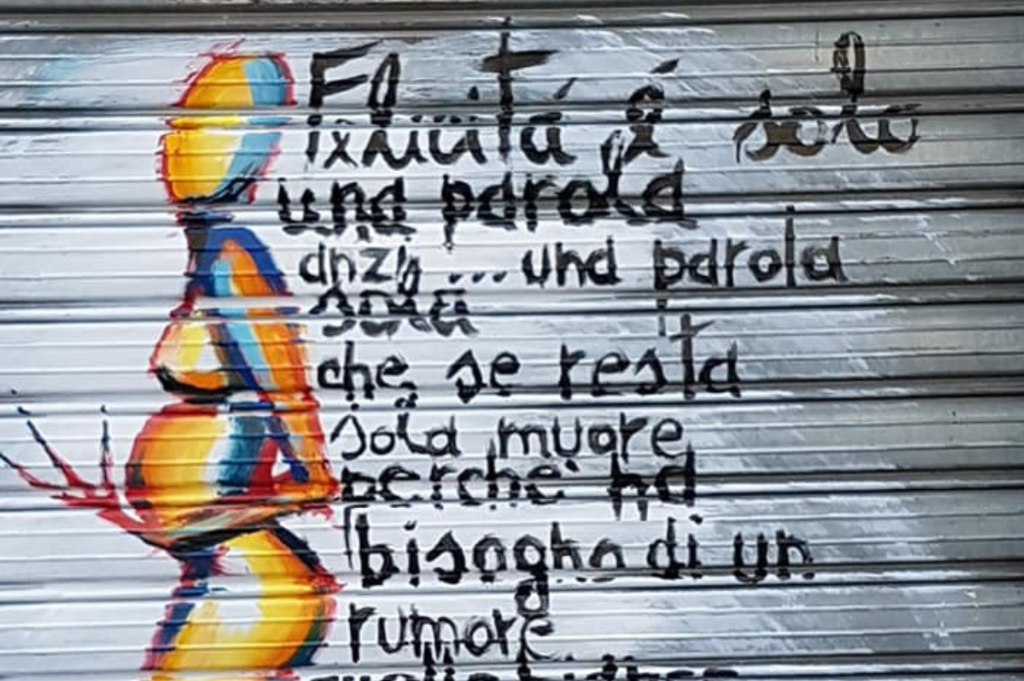 Felicità è solo
una parola
anzi ... una parola
sola
che se resta
sola muore
perchè ha
bisogno di un
rumore